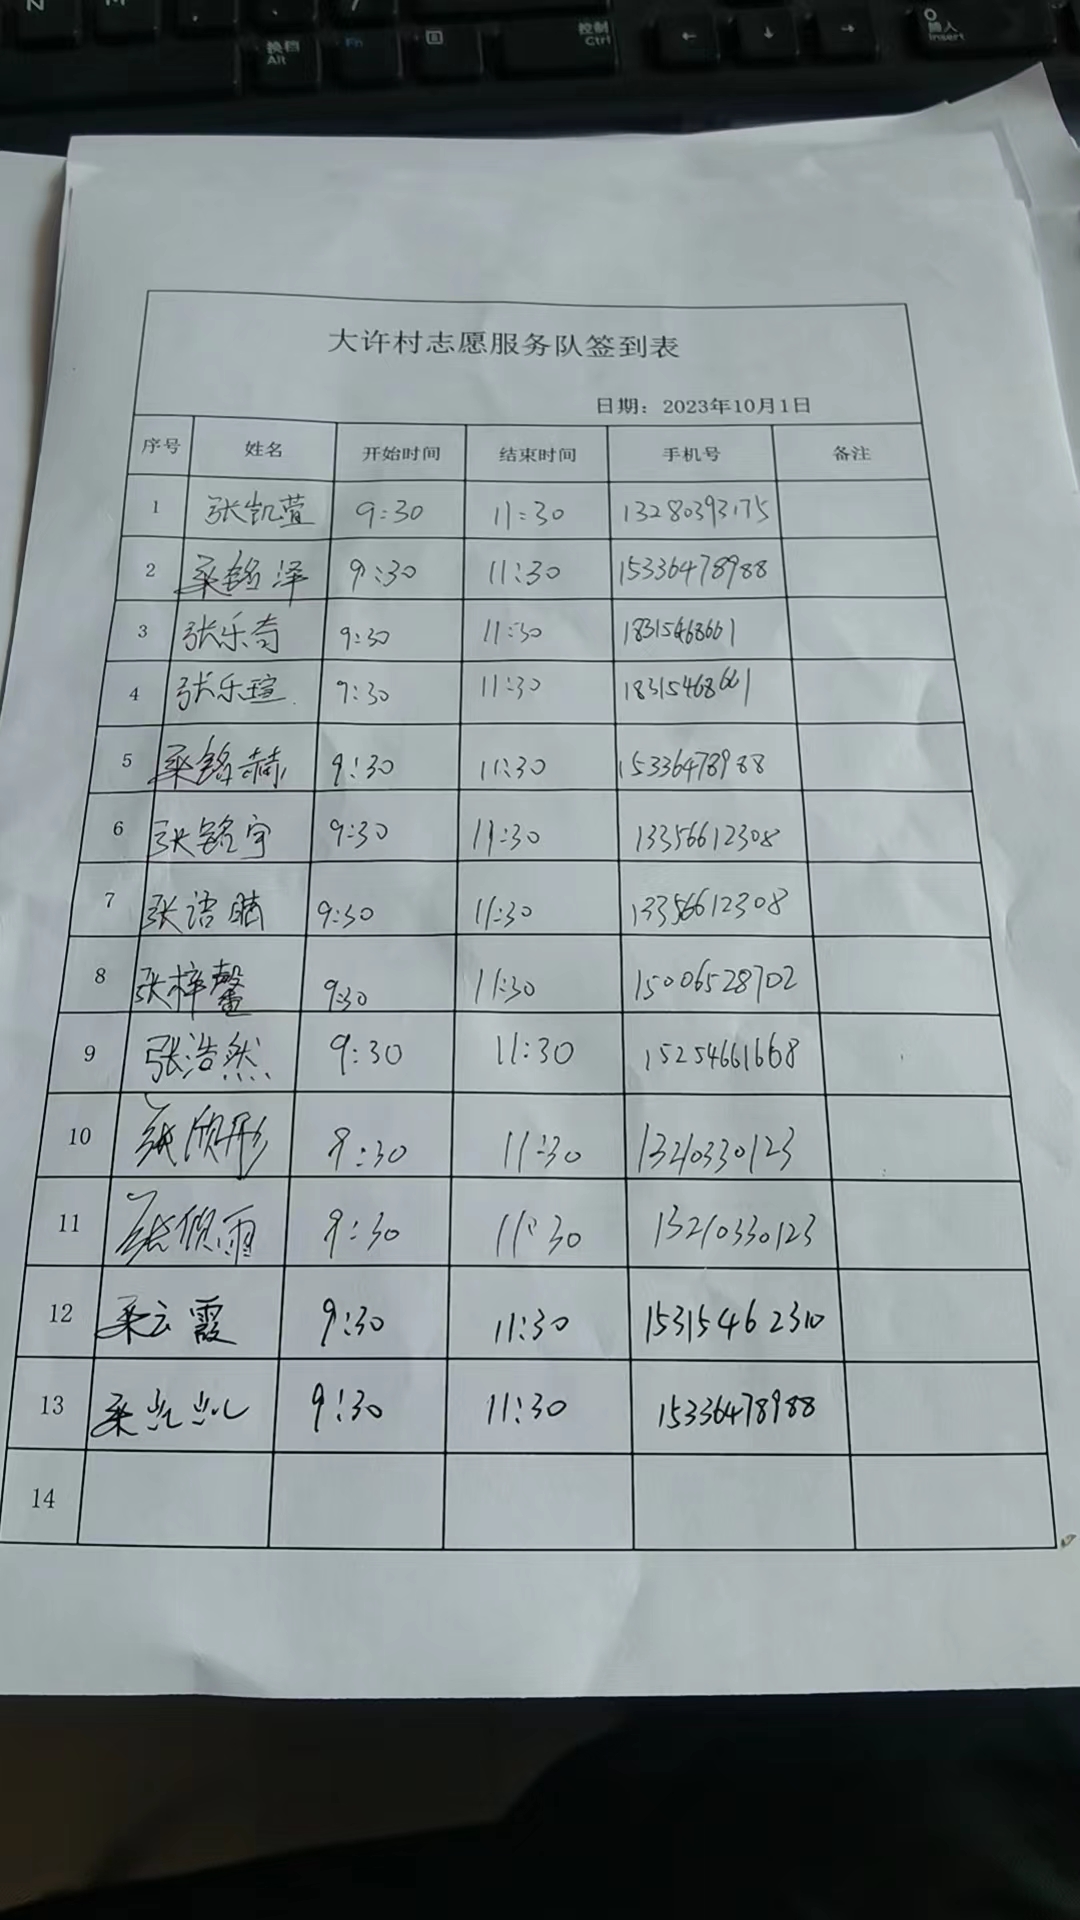 N M
换档
Alt
Fn
控制
Ctrl
← ↓ →
0
插入
Insert
大许村志愿服务队签到表
日期：2023年10月1日
序号 姓名 开始时间 结束时间 手机号 备注
1 张凯萱 9:30 11:30 13280393175
2 桑铭泽 9:30 11:30 15336478988
3 张乐奇 9:30 11:30 18315468661
4 张乐瑄 9:30 11:30 18315468661
5 桑铭赫 9:30 11:30 15336478988
6 张铭宇 9:30 11:30 13356612308
7 张语晴 9:30 11:30 13356612308
8 张梓馨 9:30 11:30 15006528702
9 张浩然 9:30 11:30 15254661668
10 张欣彤 9:30 11:30 13210330123
11 张欣雨 9:30 11:30 13210330123
12 桑云霞 9:30 11:30 15315462310
13 桑 9:30 11:30 15336478988
14